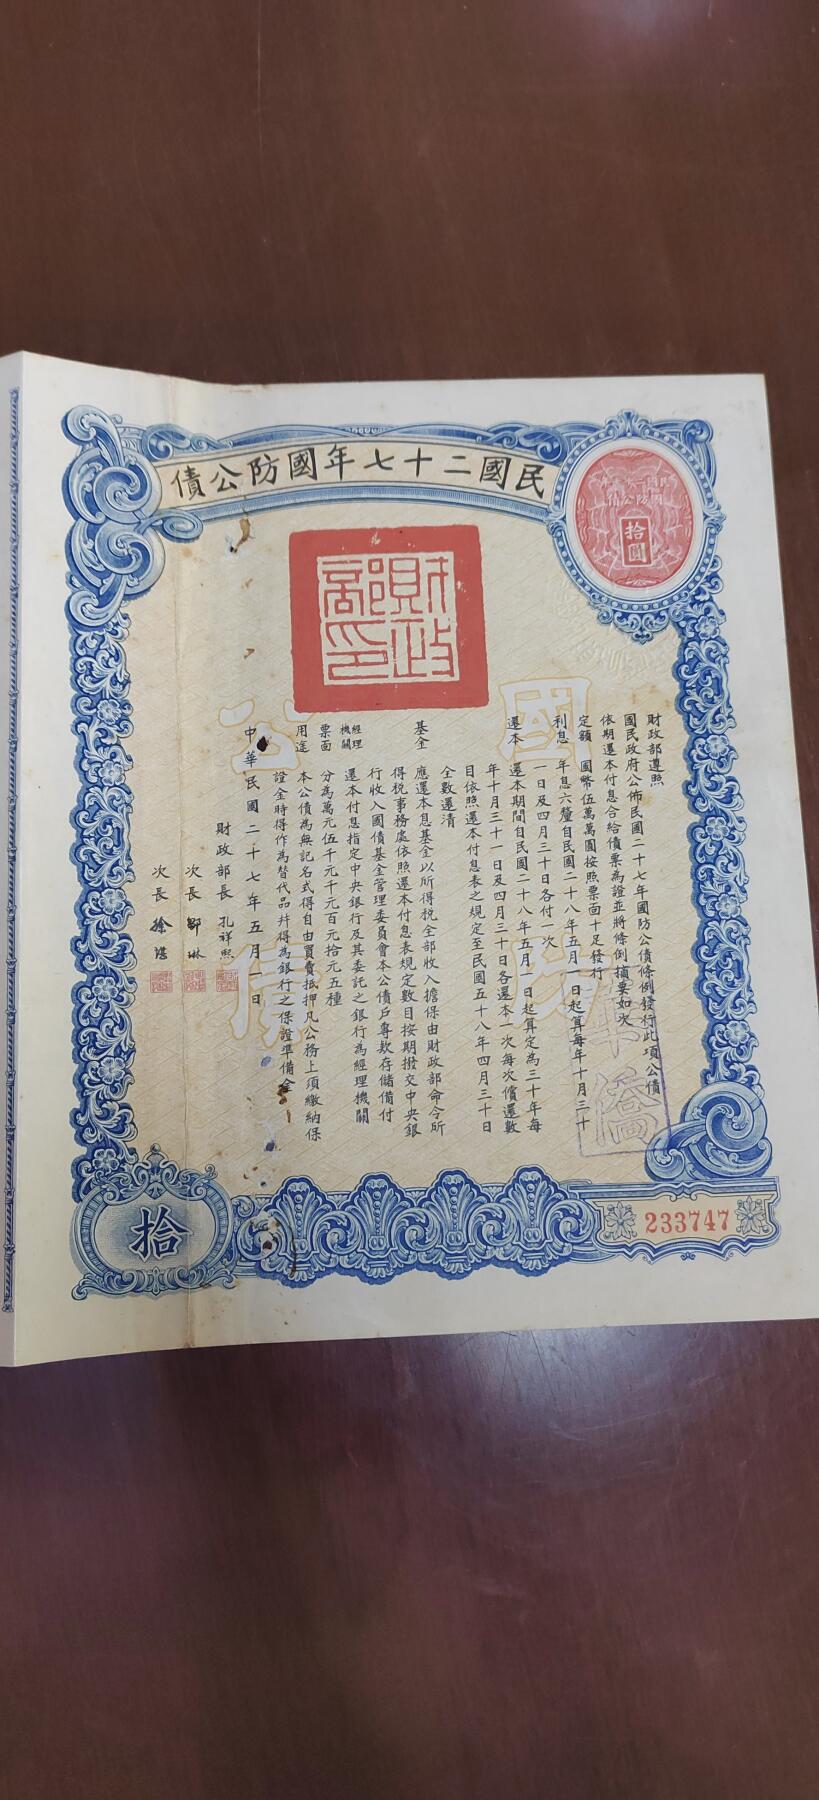 民國二十七年國防公債
民國二十七年
國防公債
拾圓
財政部印
國防公債
財政部遵照
國民政府公佈民國二十七年國防公債條例發行此項公債
依期還本付息合給債票為證並將條例摘要如次
定額 國幣伍萬萬圓按照票面十足發行
利息 年息六釐自民國二十八年五月一日起算每年十月三十
一日及四月三十日各付一次
還本 還本期間自民國二十八年五月一日起算定為三十年每
年十月三十一日及四月三十日各還本一次每次償還數
目依照還本付息表之規定至民國五十八年四月三十日
全數還清
基金 應還本息基金以所得稅全部收入擔保由財政部命令所
得稅事務處依照還本付息表規定數目按期撥交中央銀
行收入國債基金管理委員會本公債戶專款存儲備付
經理機關 還本付息指定中央銀行及其委託之銀行為經理機關
票面 分為萬元伍千元千元百元拾元五種
用途 本公債為無記名式得自由買賣抵押凡公務上須繳納保
證金時得作為替代品并得為銀行之保證準備金
中華民國二十七年五月一日
財政部長 孔祥熙
次長 鄒琳
次長 徐堪
華僑
拾
233747